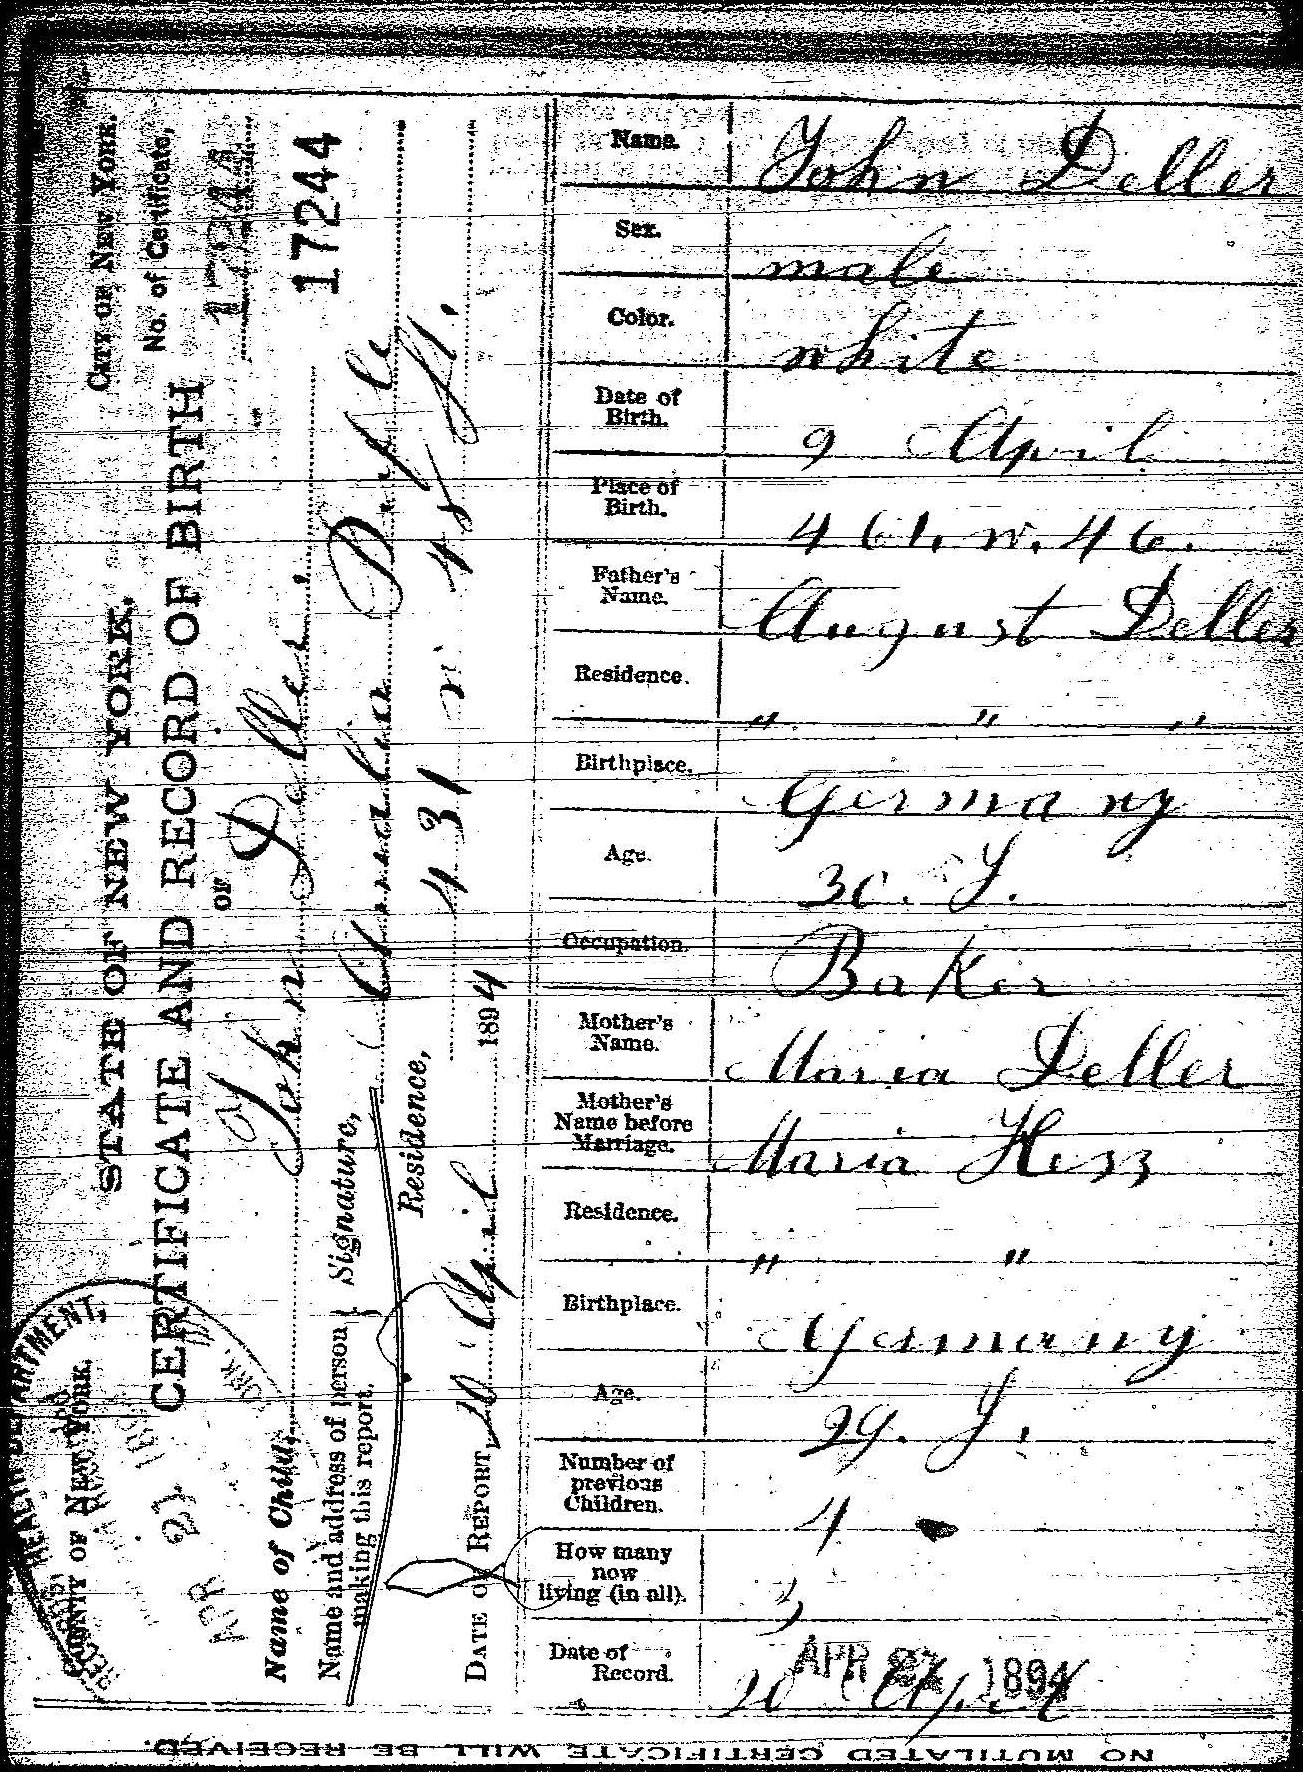 STATE OF NEW YORK.
COUNTY OF NEW YORK.
CITY OF NEW YORK.
CERTIFICATE AND RECORD OF BIRTH
No. of Certificate,
17244
17244
OF
John Deller
Name of Child,
Name and address of person making this report.
Signature,
Amalia
Residence,
431 w 48 St.
DATE OF REPORT, 20 April 1894
HEALTH DEPARTMENT,
APR
Name. John Deller
Sex. male
Color. white
Date of Birth. 9 April
Place of Birth. 461. w. 46.
Father's Name. August Deller
Residence. " " "
Birthplace. Germany
Age. 30. J.
Occupation. Baker
Mother's Name. Maria Deller
Mother's Name before Marriage. Maria Hess
Residence. " "
Birthplace. Germany
Age. 29. J.
Number of previous Children. 4
How many now living (in all). 3
Date of Record. 20 April
APR 1894
NO MUTILATED CERTIFICATE WILL BE RECEIVED.